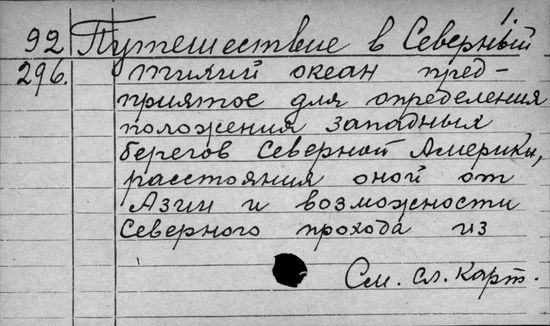 1.
92 Путешествие в Северный
296. тихий океан пред-
принятое для определения
положения западных
берегов Северной Америки,
расстояния оной от
Азии и возможности
Северного прохода из
См. сл. карт.